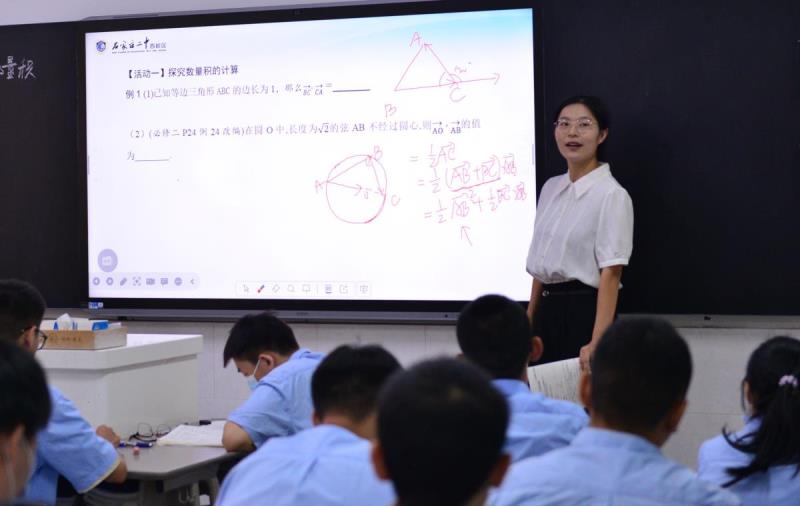 量积
石家庄二中
西校区
【活动一】探究数量积的计算
例 1 (1)已知等边三角形 ABC 的边长为 1，那么BC·CA=______
A
120°
B
C
(2)（必修二 P24 例 24 改编)在圆 O 中,长度为√2的弦 AB 不经过圆心,则AO·AB的值
为______.
A
B
O
C
= 1/2 AC
= 1/2 (AB + BC)·AB
= 1/2 AB² + 1/2 BC·AB